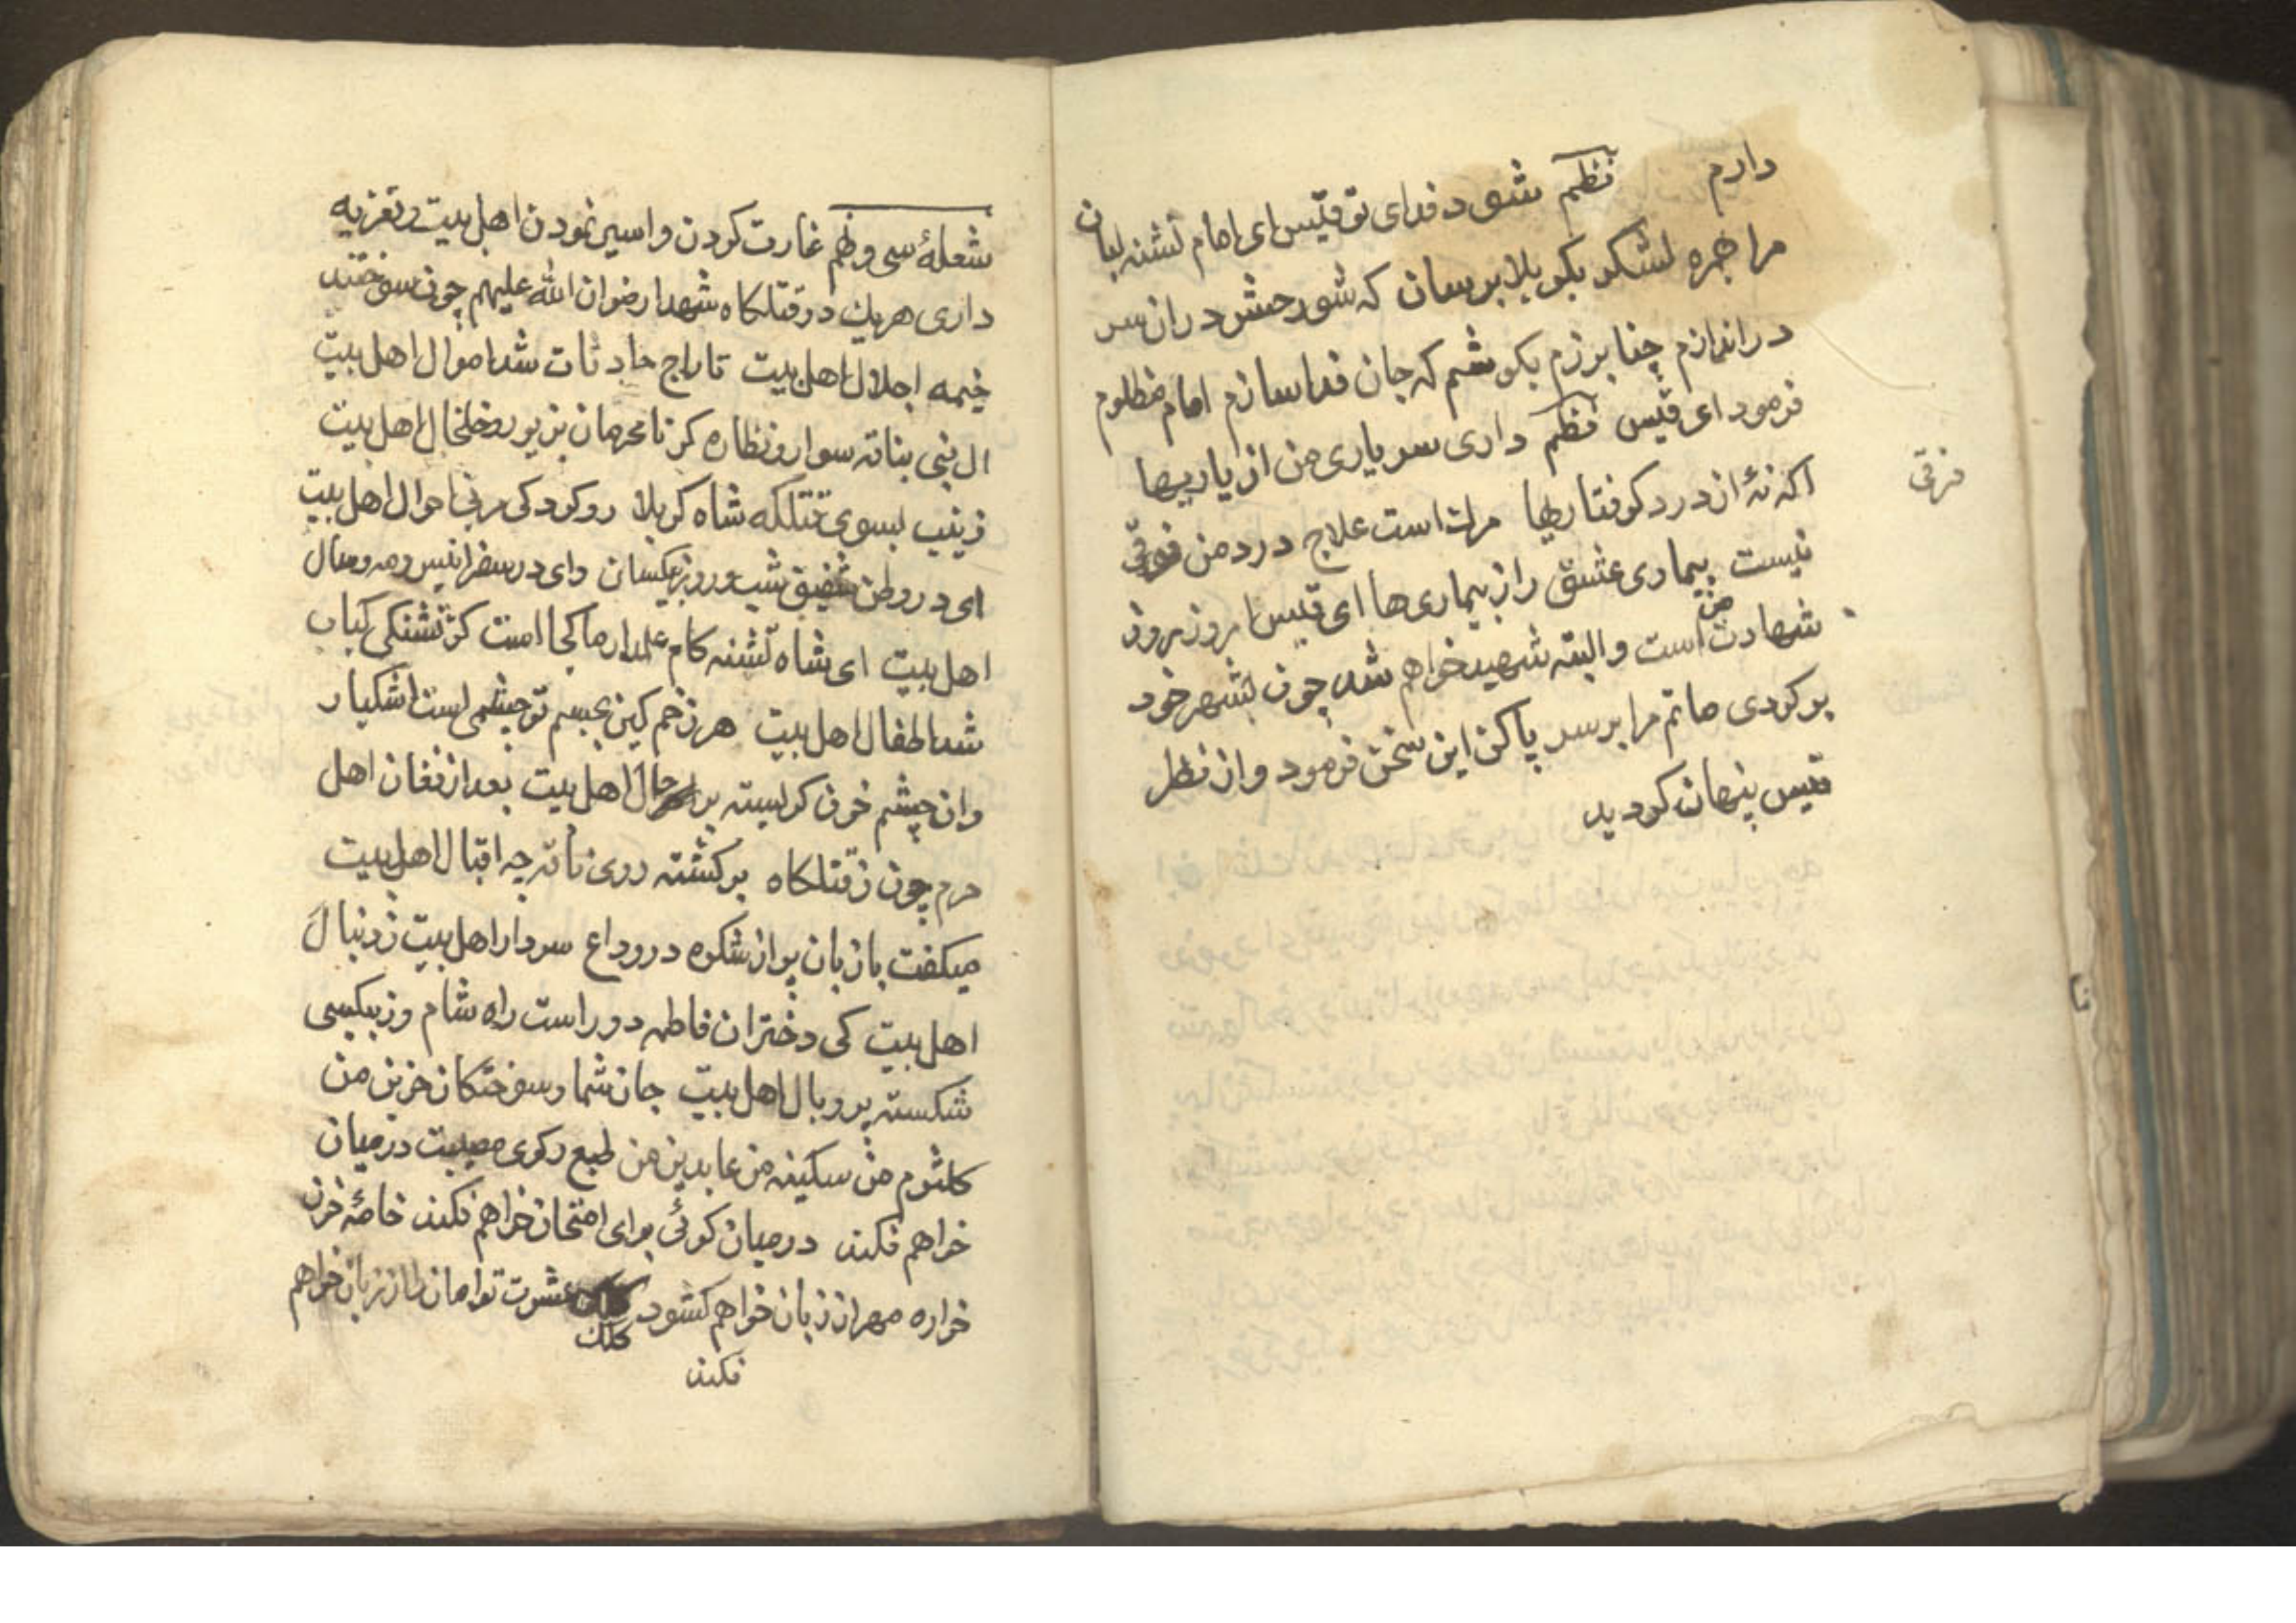 دارم نظم شود فدای تو قیس ای امام تشنه لبان
مرا بهره لشکر بکربلا برسان که شور حشر دران سر
دراندازم چنا برزم بکوشم که جان فدا سازم امام مظلوم
فرمود ای قیس نظم داری سر یاری من از یاریها
اکه نهٔ از درد کرفتاریها مرك است علاج درد من فرقی
فرقی
نیست بیماری عشق را ز بیماری‌ها ای قیس امروز روز
شهادت من است و البته شهید خواهم شد چون بشهر خود
برکردی ماتم مرا بر سر پا کن این سخن فرمود و از نظر
قیس پنهان کردید
شعلهٔ سی و نهم غارت کردن و اسیر نمودن اهل بیت و تعزیه
داری هریك در قتلکاه شهدا رضوان الله علیهم چون سوختند
خیمه اجلال اهل بیت تاراج حادثات شد اموال اهل بیت
ال نبی بناقه سوار و نظاره کر نامحرمان بزیور و خلخال اهل بیت
زینب بسوی قتلکه شاه کربلا رو کرد کی مربی احوال اهل بیت
ای در وطن شفیق شب و روز بیکسان وای در سفر انیس و مه و سال
اهل بیت ای شاه تشنه کام علمدار ما کجا است کز تشنکی کباب
شد اطفال اهل بیت هر زخم کین بجسم تو چشمی است اشکبار
وان چشم خون کریسته بر حال اهل بیت بعد از فغان اهل
حرم چون ز قتلکاه برکشته روی ناقه چه اقبال اهل بیت
میکفت با زبان پر از شکوه در وداع سردار اهل بیت ز دنبال
اهل بیت کی دختران فاطمه دور است راه شام وز بیکسی
شکسته پر و بال اهل بیت جان شما و سوختکان حزین من
کلثوم من سکینه من عابدین من طبع رکوی مصیبت در میان
خواهم فکند در میان کوئی برای امتحان خواهم فکند خامهٔ خون
خواره مهر از زبان خواهم کشود کلك عشرت توامان را از زبان خواهم
کلك
فکند